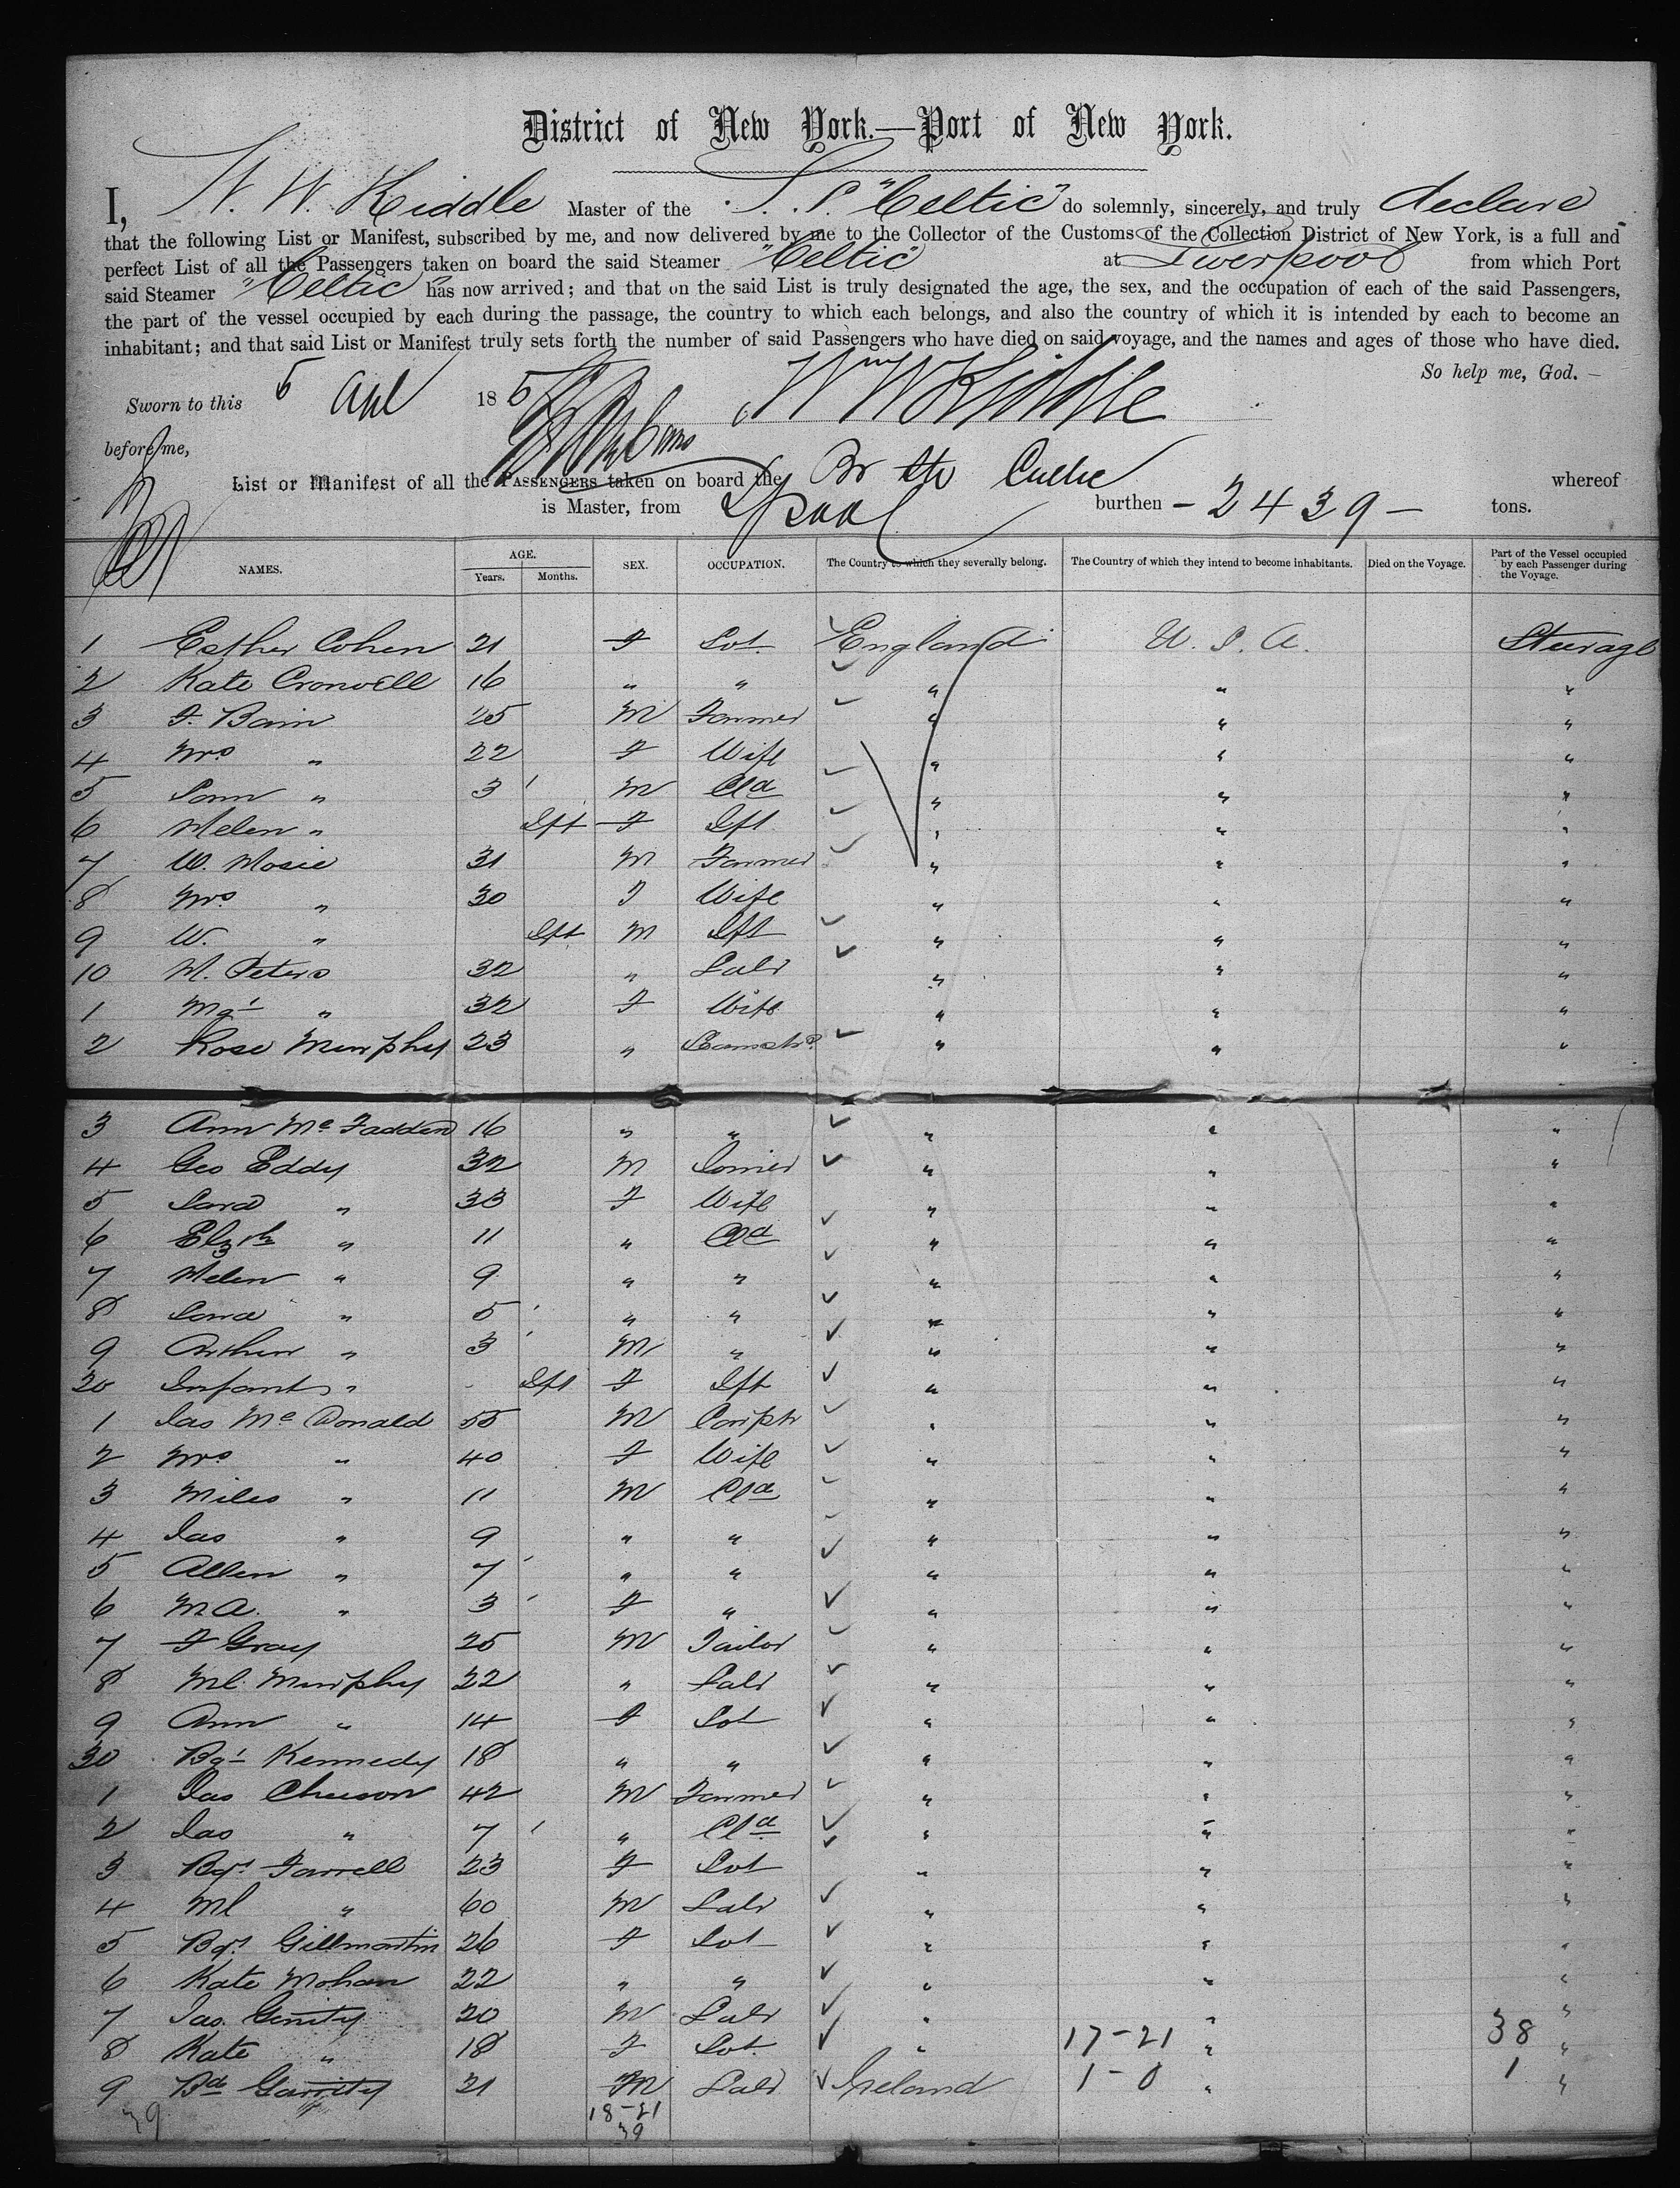 District of New York.—Port of New York.
I, W. W. Kiddle Master of the S. S. "Celtic" do solemnly, sincerely, and truly declare
that the following List or Manifest, subscribed by me, and now delivered by me to the Collector of the Customs of the Collection District of New York, is a full and
perfect List of all the Passengers taken on board the said Steamer "Celtic" at Liverpool from which Port
said Steamer "Celtic" has now arrived; and that on the said List is truly designated the age, the sex, and the occupation of each of the said Passengers,
the part of the vessel occupied by each during the passage, the country to which each belongs, and also the country of which it is intended by each to become an
inhabitant; and that said List or Manifest truly sets forth the number of said Passengers who have died on said voyage, and the names and ages of those who have died.
So help me, God.
Sworn to this 5 Apl 18 Wm W Kiddle
before me,
List or Manifest of all the PASSENGERS taken on board the Br Str Celtic whereof
is Master, from Lpool burthen - 2439 - tons.
NAMES. AGE. Years. Months. SEX. OCCUPATION. The Country to which they severally belong. The Country of which they intend to become inhabitants. Died on the Voyage. Part of the Vessel occupied by each Passenger during the Voyage.
1 Esther Cohen 21 F Svt. England U. S. A. Steerage
2 Kate Cronwell 16 " " " " "
3 F. Bain 25 M Farmer " " "
4 Mrs " 22 F Wife " " "
5 " 3 M Cld " " "
6 Helen " Ift F Ift " " "
7 W. Mosie 31 M Farmer " " "
8 Mrs " 30 F Wife " " "
9 W. " Ift M Ift " " "
10 W. Peters 32 " Labr " " "
1 Mgt " 32 F Wife " " "
2 Rose Murphy 23 " Seamstrs " " "
3 Ann Mc Fadden 16 " " " " "
4 Geo Eddy 32 M Joiner " " "
5 Sara " 33 F Wife " " "
6 Elzth " 11 " Cld " " "
7 Helen " 9 " " " " "
8 Sara " 5 " " " " "
9 Arthur " 3 M " " " "
20 Infant " Ift F Ift " " "
1 Jas Mc Donald 55 M Carptr " " "
2 Mrs " 40 F Wife " " "
3 Miles " 11 M Cld " " "
4 Jas " 9 " " " " "
5 Allen " 7 " " " " "
6 M A. " 3 F " " " "
7 F Gray 25 M Tailor " " "
8 Ml Murphy 22 " Labr " " "
9 Ann " 14 F Svt " " "
30 Bgt Kennedy 18 " " " " "
1 Jas 42 M Farmer " " "
2 Jas " 7 " Cld " " "
3 Bgt Farrell 23 F Svt " " "
4 Ml " 60 M Labr " " "
5 Bgt Gillmartin 26 F Svt " " "
6 Kate Mohan 22 " " " " "
7 Jas. Ginity 20 M Labr " " "
8 Kate " 18 F Svt. " 17-21 " 38 "
9 Bd Garrity 21 M Labr Ireland 1-0 " 1 "
39 18-21
39